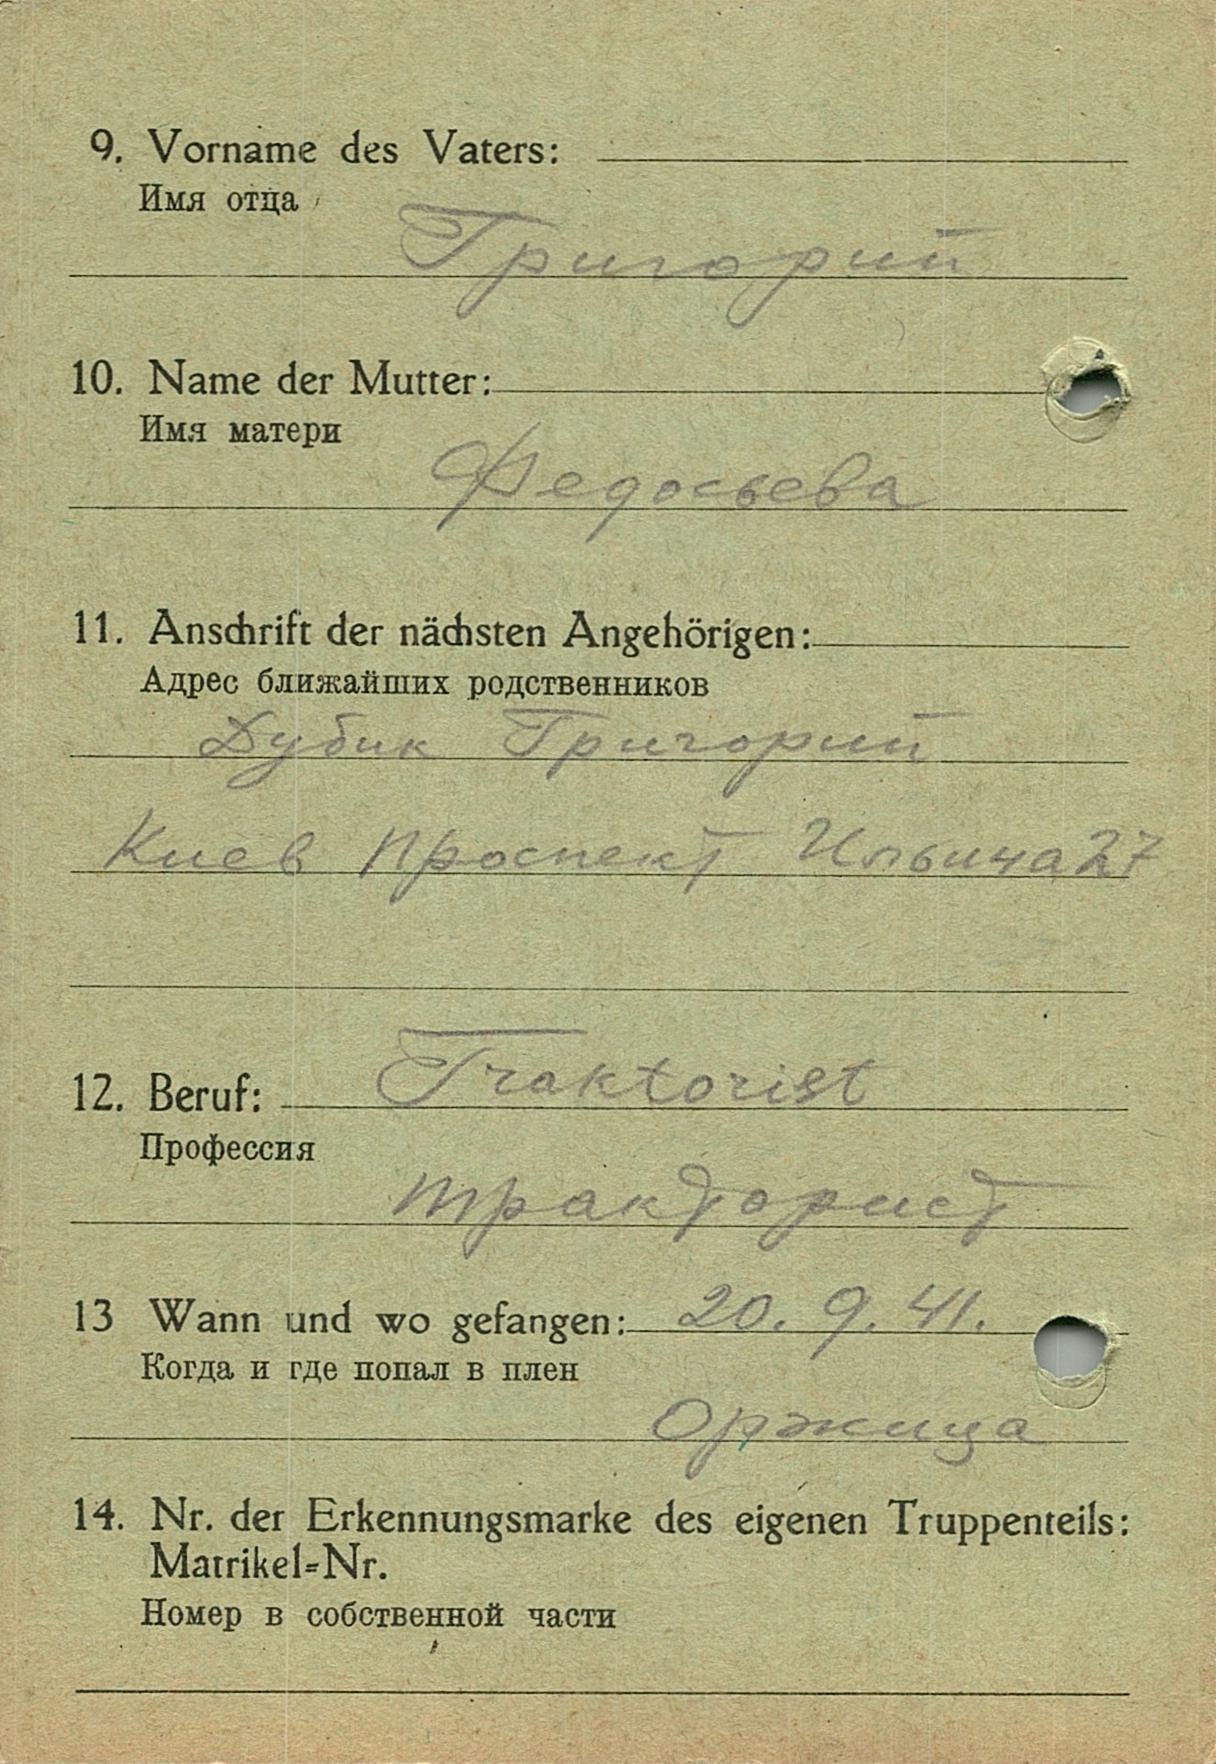 9. Vorname des Vaters:
Имя отца
Григорий
10. Name der Mutter:
Имя матери
Федосьева
11. Anschrift der nächsten Angehörigen:
Адрес ближайших родственников
Дубик Григорий
Киев Проспект Ильича 27
12. Beruf: Traktorist
Профессия
тракторист
13 Wann und wo gefangen: 20. 9. 41.
Когда и где попал в плен
Оржица
14. Nr. der Erkennungsmarke des eigenen Truppenteils:
Matrikel=Nr.
Номер в собственной части